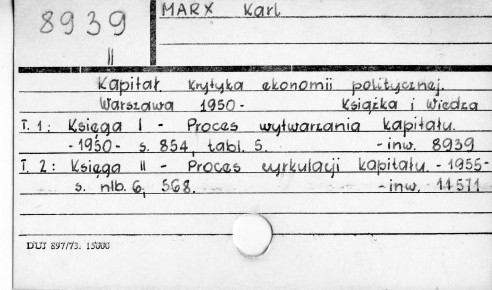 MARX Karl
8939
II
Kapitał. Krytyka ekonomii politycznej.
Warszawa 1950- Książka i Wiedza
T. 1: Księga I - Proces wytwarzania kapitału.
-1950- s. 854, tabl. 5. -inw. 8939
T. 2: Księga II - Proces cyrkulacji kapitału. -1955-
s. nlb. 6, 568. -inw. 11571
DUJ 897/73. 15000